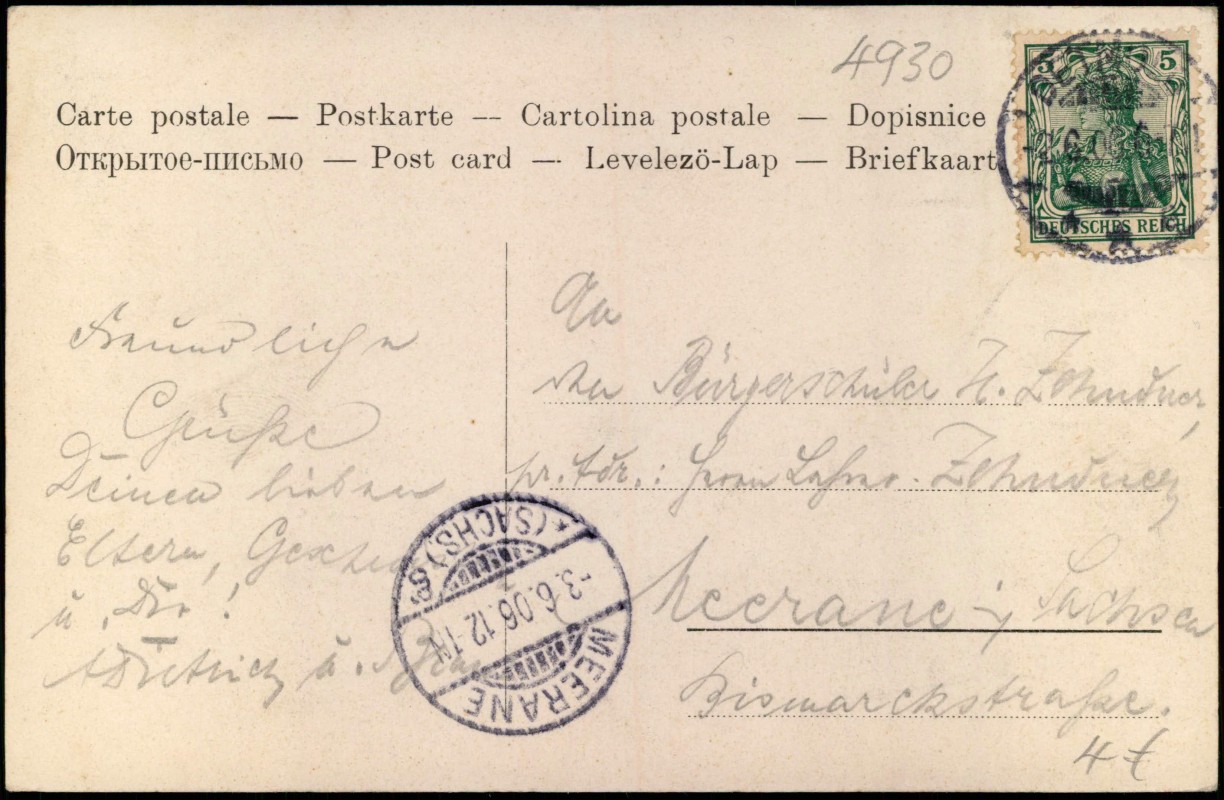 4930
Carte postale — Postkarte — Cartolina postale — Dopisnice
Открытое-письмо — Post card — Levelezö-Lap — Briefkaart
5 5
DEUTSCHES REICH
Freundliche
Grüße
Deinen lieben
Eltern,
u. Dir!
u.
An
den Bürgerschüler H. Zehmdner,
pr. Adr.: Herrn Lehrer Zehmdner
Meerane i. Sachsen
Bismarckstraße.
4
MEERANE
(SACHS) *
-3.6.06.12-1N.